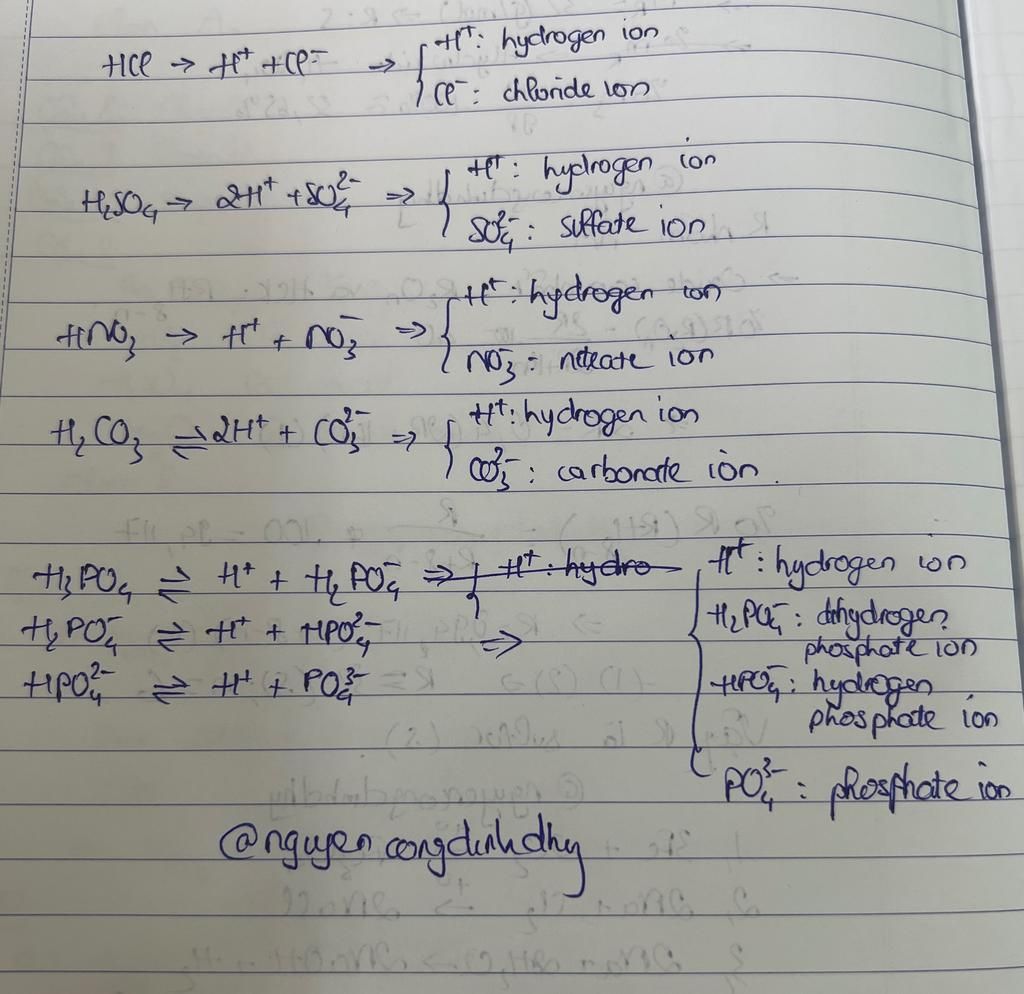 HCl → H⁺ + Cl⁻ → { H⁺: hydrogen ion
Cl⁻: chloride ion
H₂SO₄ → 2H⁺ + SO₄²⁻ ⇒ { H⁺: hydrogen ion
SO₄²⁻: sulfate ion
HNO₃ → H⁺ + NO₃⁻ ⇒ { H⁺: hydrogen ion
NO₃⁻: ion
H₂CO₃ ⇌ 2H⁺ + CO₃²⁻ ⇒ { H⁺: hydrogen ion
CO₃²⁻: carbonate ion.
H₃PO₄ ⇌ H⁺ + H₂PO₄⁻ ⇒ { H⁺: hydro
H₂PO₄⁻ ⇌ H⁺ + HPO₄²⁻ ⇒
HPO₄²⁻ ⇌ H⁺ + PO₄³⁻
{ H⁺: hydrogen ion
H₂PO₄⁻: dihydrogen
phosphate ion
HPO₄⁻: hydrogen
phosphate ion
PO₄³⁻: phosphate ion
@nguyencongdinhdhy